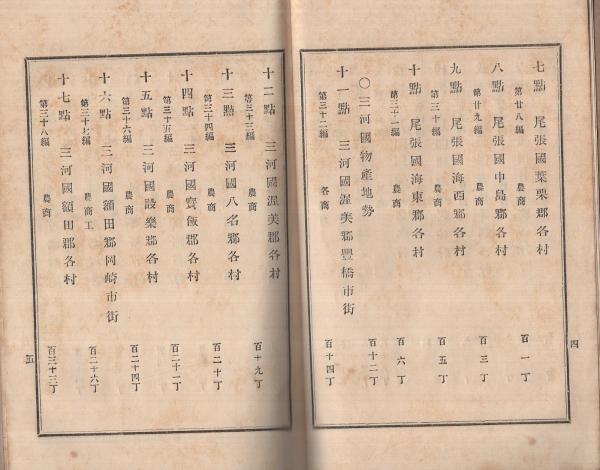 七點　尾張國葉栗郡各村　百一丁
第廿八編　農商
八點　尾張國中島郡各村　百三丁
第廿九編　農商
九點　尾張國海西郡各村　百五丁
第三十編　農商
十點　尾張國海東郡各村　百六丁
第三十一編　農商
〇三河國物產地勢　百十二丁
十一點　三河國渥美郡豐橋市街　百十四丁
第三十二編　各商
四
十二點　三河國渥美郡各村　百十九丁
第三十三編　農商
十三點　三河國八名郡各村　百二十丁
第三十四編　農商
十四點　三河國寶飯郡各村　百二十一丁
第三十五編　農商
十五點　三河國設樂郡各村　百二十四丁
第三十六編　農商
十六點　三河國額田郡岡崎市街　百二十六丁
第三十七編　農商工
十七點　三河國額田郡各村　百三十三丁
第三十八編　農商
五